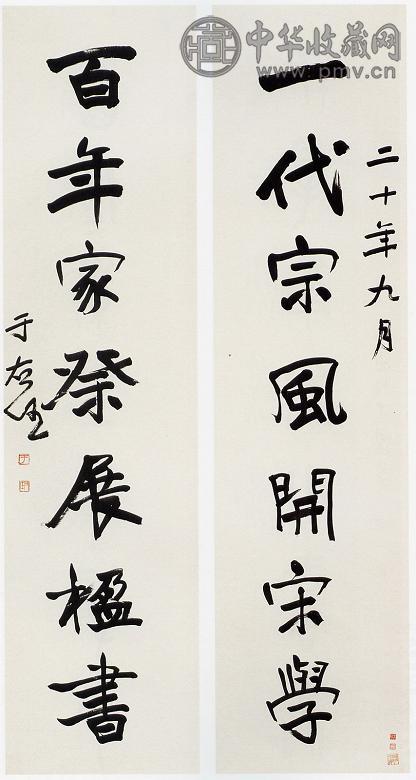 中华收藏网
www.pmv.cn
二十年九月
一代宗風開宋學
百年家祭展楹書
于右任